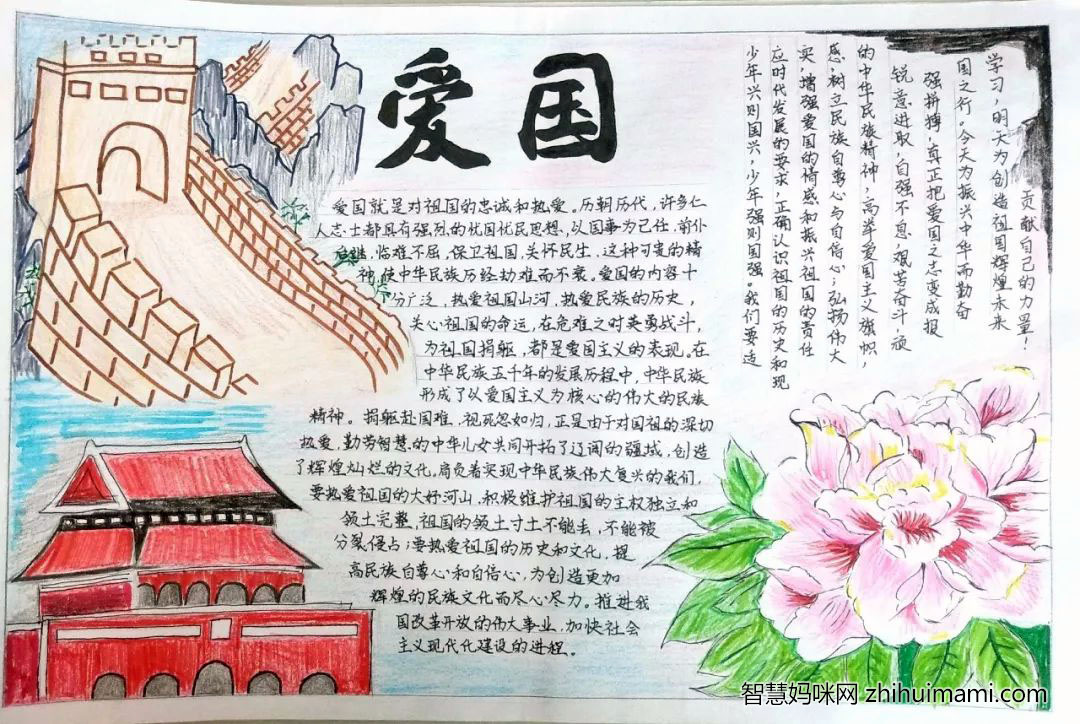 爱国
爱国就是对祖国的忠诚和热爱。历朝历代，许多仁
人志士都具有强烈的忧国忧民思想，以国事为己任，前仆
后继，临难不屈，保卫祖国，关怀民生，这种可贵的精
神，使中华民族历经劫难而不衰。爱国的内容十
分广泛，热爱祖国山河，热爱民族的历史，
关心祖国的命运，在危难之时英勇战斗，
为祖国捐躯，都是爱国主义的表现。在
中华民族五千年的发展历程中，中华民族
形成了以爱国主义为核心的伟大的民族
精神。捐躯赴国难，视死忽如归，正是由于对国祖的深切
热爱，勤劳智慧的中华儿女共同开拓了辽阔的疆域，创造
了辉煌灿烂的文化。肩负着实现中华民族伟大复兴的我们，
要热爱祖国的大好河山，积极维护祖国的主权独立和
领土完整，祖国的领土寸土不能丢，不能被
分裂侵占；要热爱祖国的历史和文化，提
高民族自尊心和自信心，为创造更加
辉煌的民族文化而尽心尽力。推进我
国改革开放的伟大事业，加快社会
主义现代化建设的进程。
少年兴则国兴，少年强则国强。我们要适
应时代发展的要求，正确认识祖国的历史和现
实，增强爱国的情感和振兴祖国的责任
感，树立民族自尊心与自信心；弘扬伟大
的中华民族精神，高举爱国主义旗帜，
锐意进取，自强不息，艰苦奋斗，顽
强拼搏，真正把爱国之志变成报
国之行。今天为振兴中华而勤奋
学习，明天为创造祖国辉煌未来
贡献自己的力量！
智慧妈咪网 zhihuimami.com